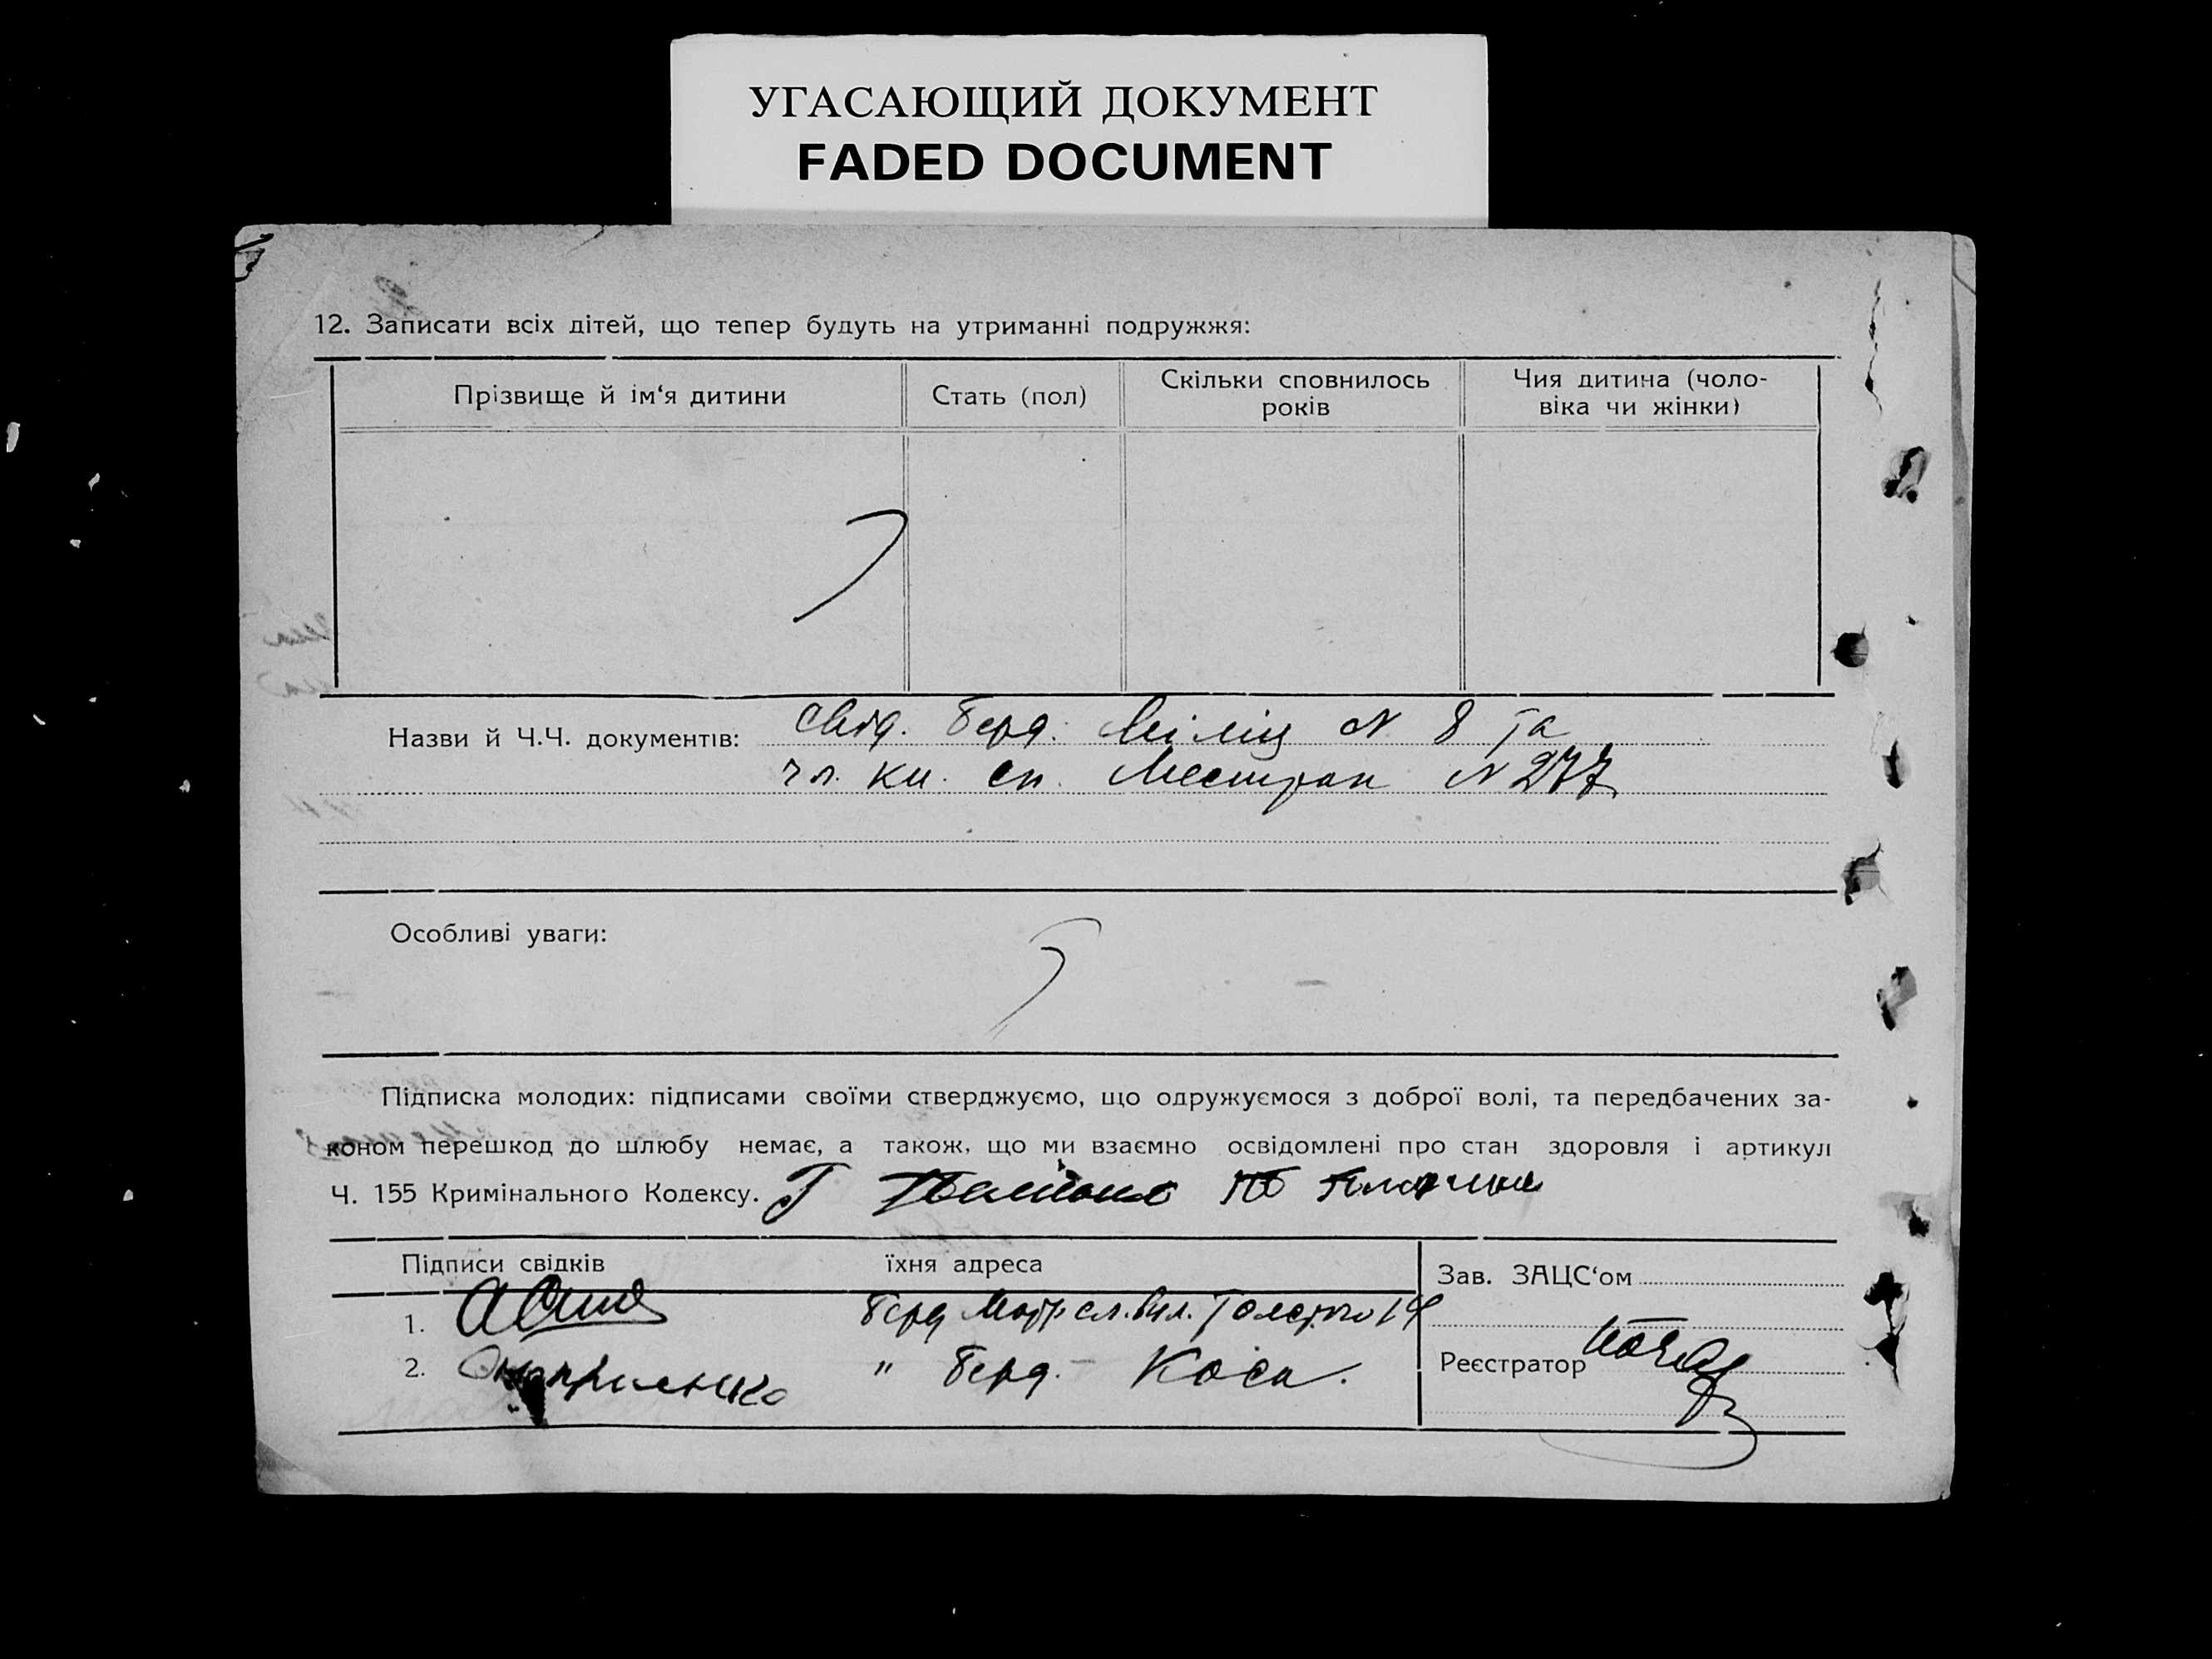 УГАСАЮЩИЙ ДОКУМЕНТ
FADED DOCUMENT
12. Записати всіх дітей, що тепер будуть на утриманні подружжя:
Прізвище й ім‘я дитини
Стать (пол)
Скільки сповнилось
років
Чия дитина (чоло-
віка чи жінки)
Назви й Ч.Ч. документів: свід. Берд. Міліц N 8 та
чл. кн. сп. N 277
Особливі уваги:
Підписка молодих: підписами своїми стверджуємо, що одружуємося з доброї волі, та передбачених за-
коном перешкод до шлюбу немає, а також, що ми взаємно освідомлені про стан здоровля і артикул
Ч. 155 Кримінального Кодексу.
Підписи свідків
їхня адреса
1. Берд
2. " Берд. Коса.
Зав. ЗАЦС‘ом
Реєстратор